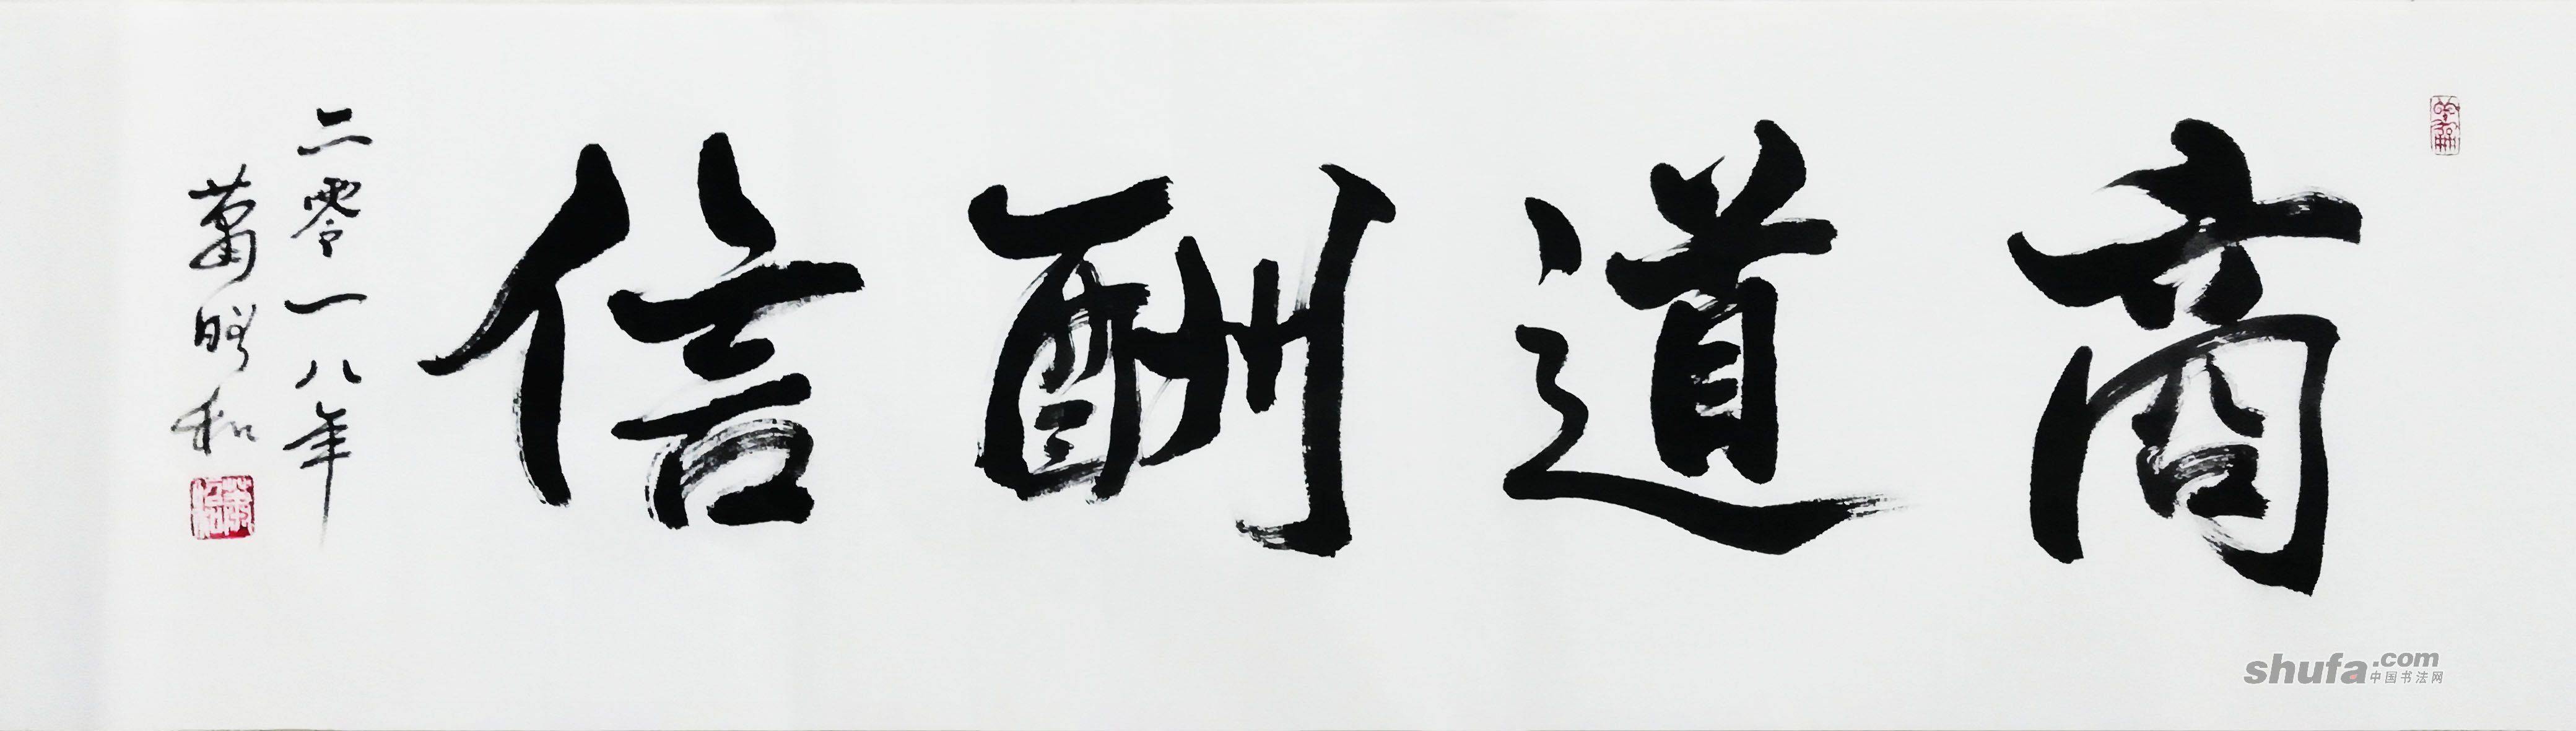 商道酬信
二零一八年
萧明和
shufa.com
中国书法网